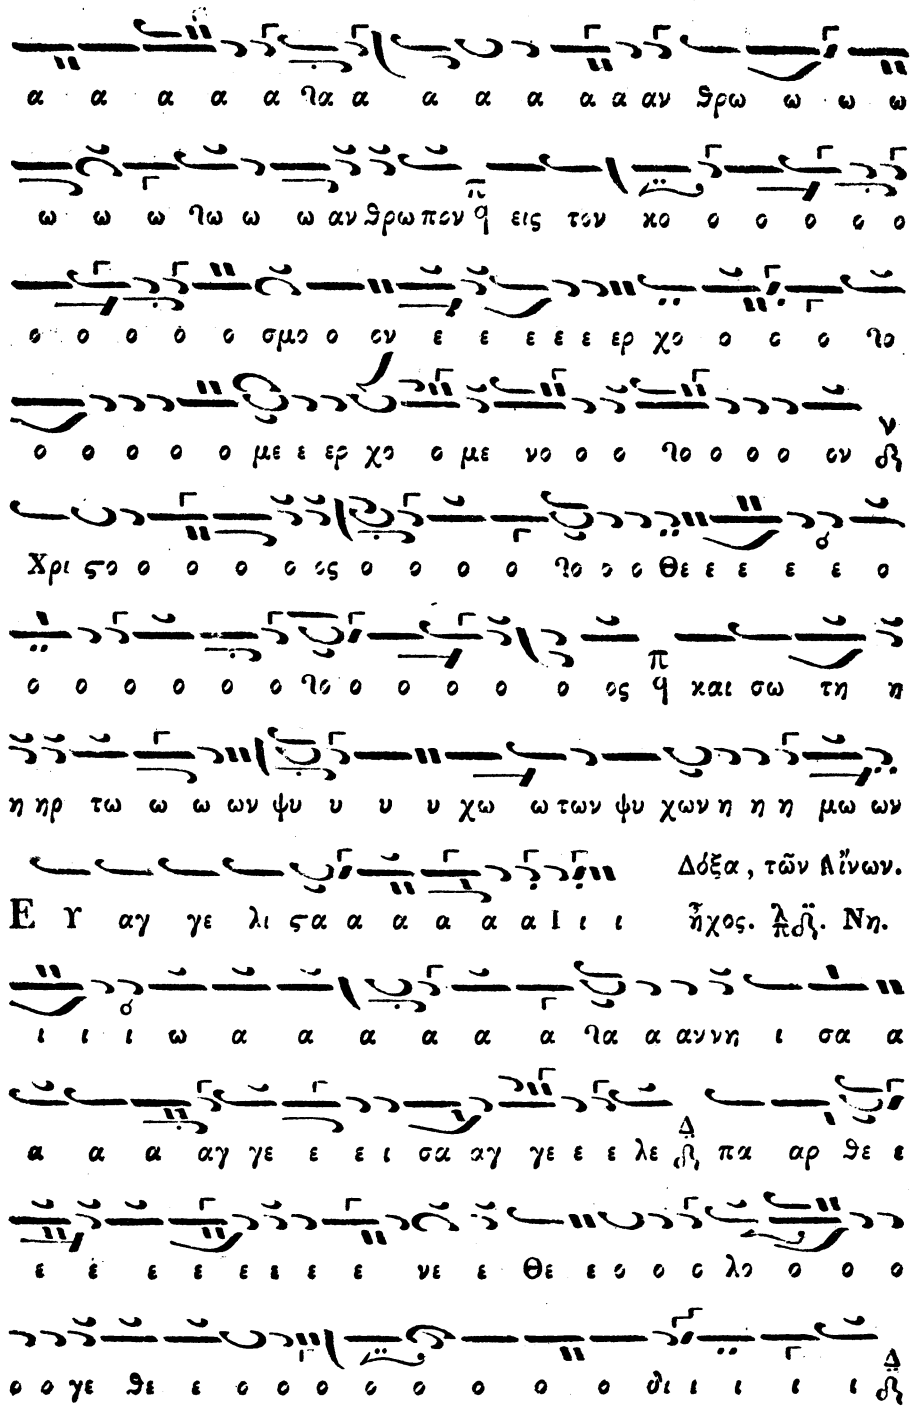 α α α α α τα α α α α α α αν θρω ω ω ω
ω ω ω τω ω ω αν θρω πον π q εις τον κο ο ο ο ο ο
ο ο ο ο ο σμο ο ον ε ε ε ε ε ερ χο ο ο ο το
ο ο ο ο ο με ε ερ χο ο με νο ο ο το ο ο ο ον
Χρι ϛο ο ο ο ο ος ο ο ο ο το ο ο Θε ε ε ε ε ο
ο ο ο ο ο ο το ο ο ο ο ο ο ος π q και σω τη η
η ηρ τω ω ω ων ψυ υ υ υ χω ω των ψυ χων η η η μω ων
Δόξα, τῶν Αἴνων.
Ε Υ αγ γε λι ϛα α α α α α Ι ι ι ἦχος. Νη.
ι ι ι ω α α α α α α τα α αν νη ι σα α
α α α αγ γε ε ε ι σα αγ γε ε ε λε Δ πα αρ θε ε
ε ε ε ε ε ε ε ε νε ε Θε ε ο ο ο λο ο ο ο
ο ο γε θε ε ο ο ο ο ο ο ο ο θι ι ι ι ι Δ